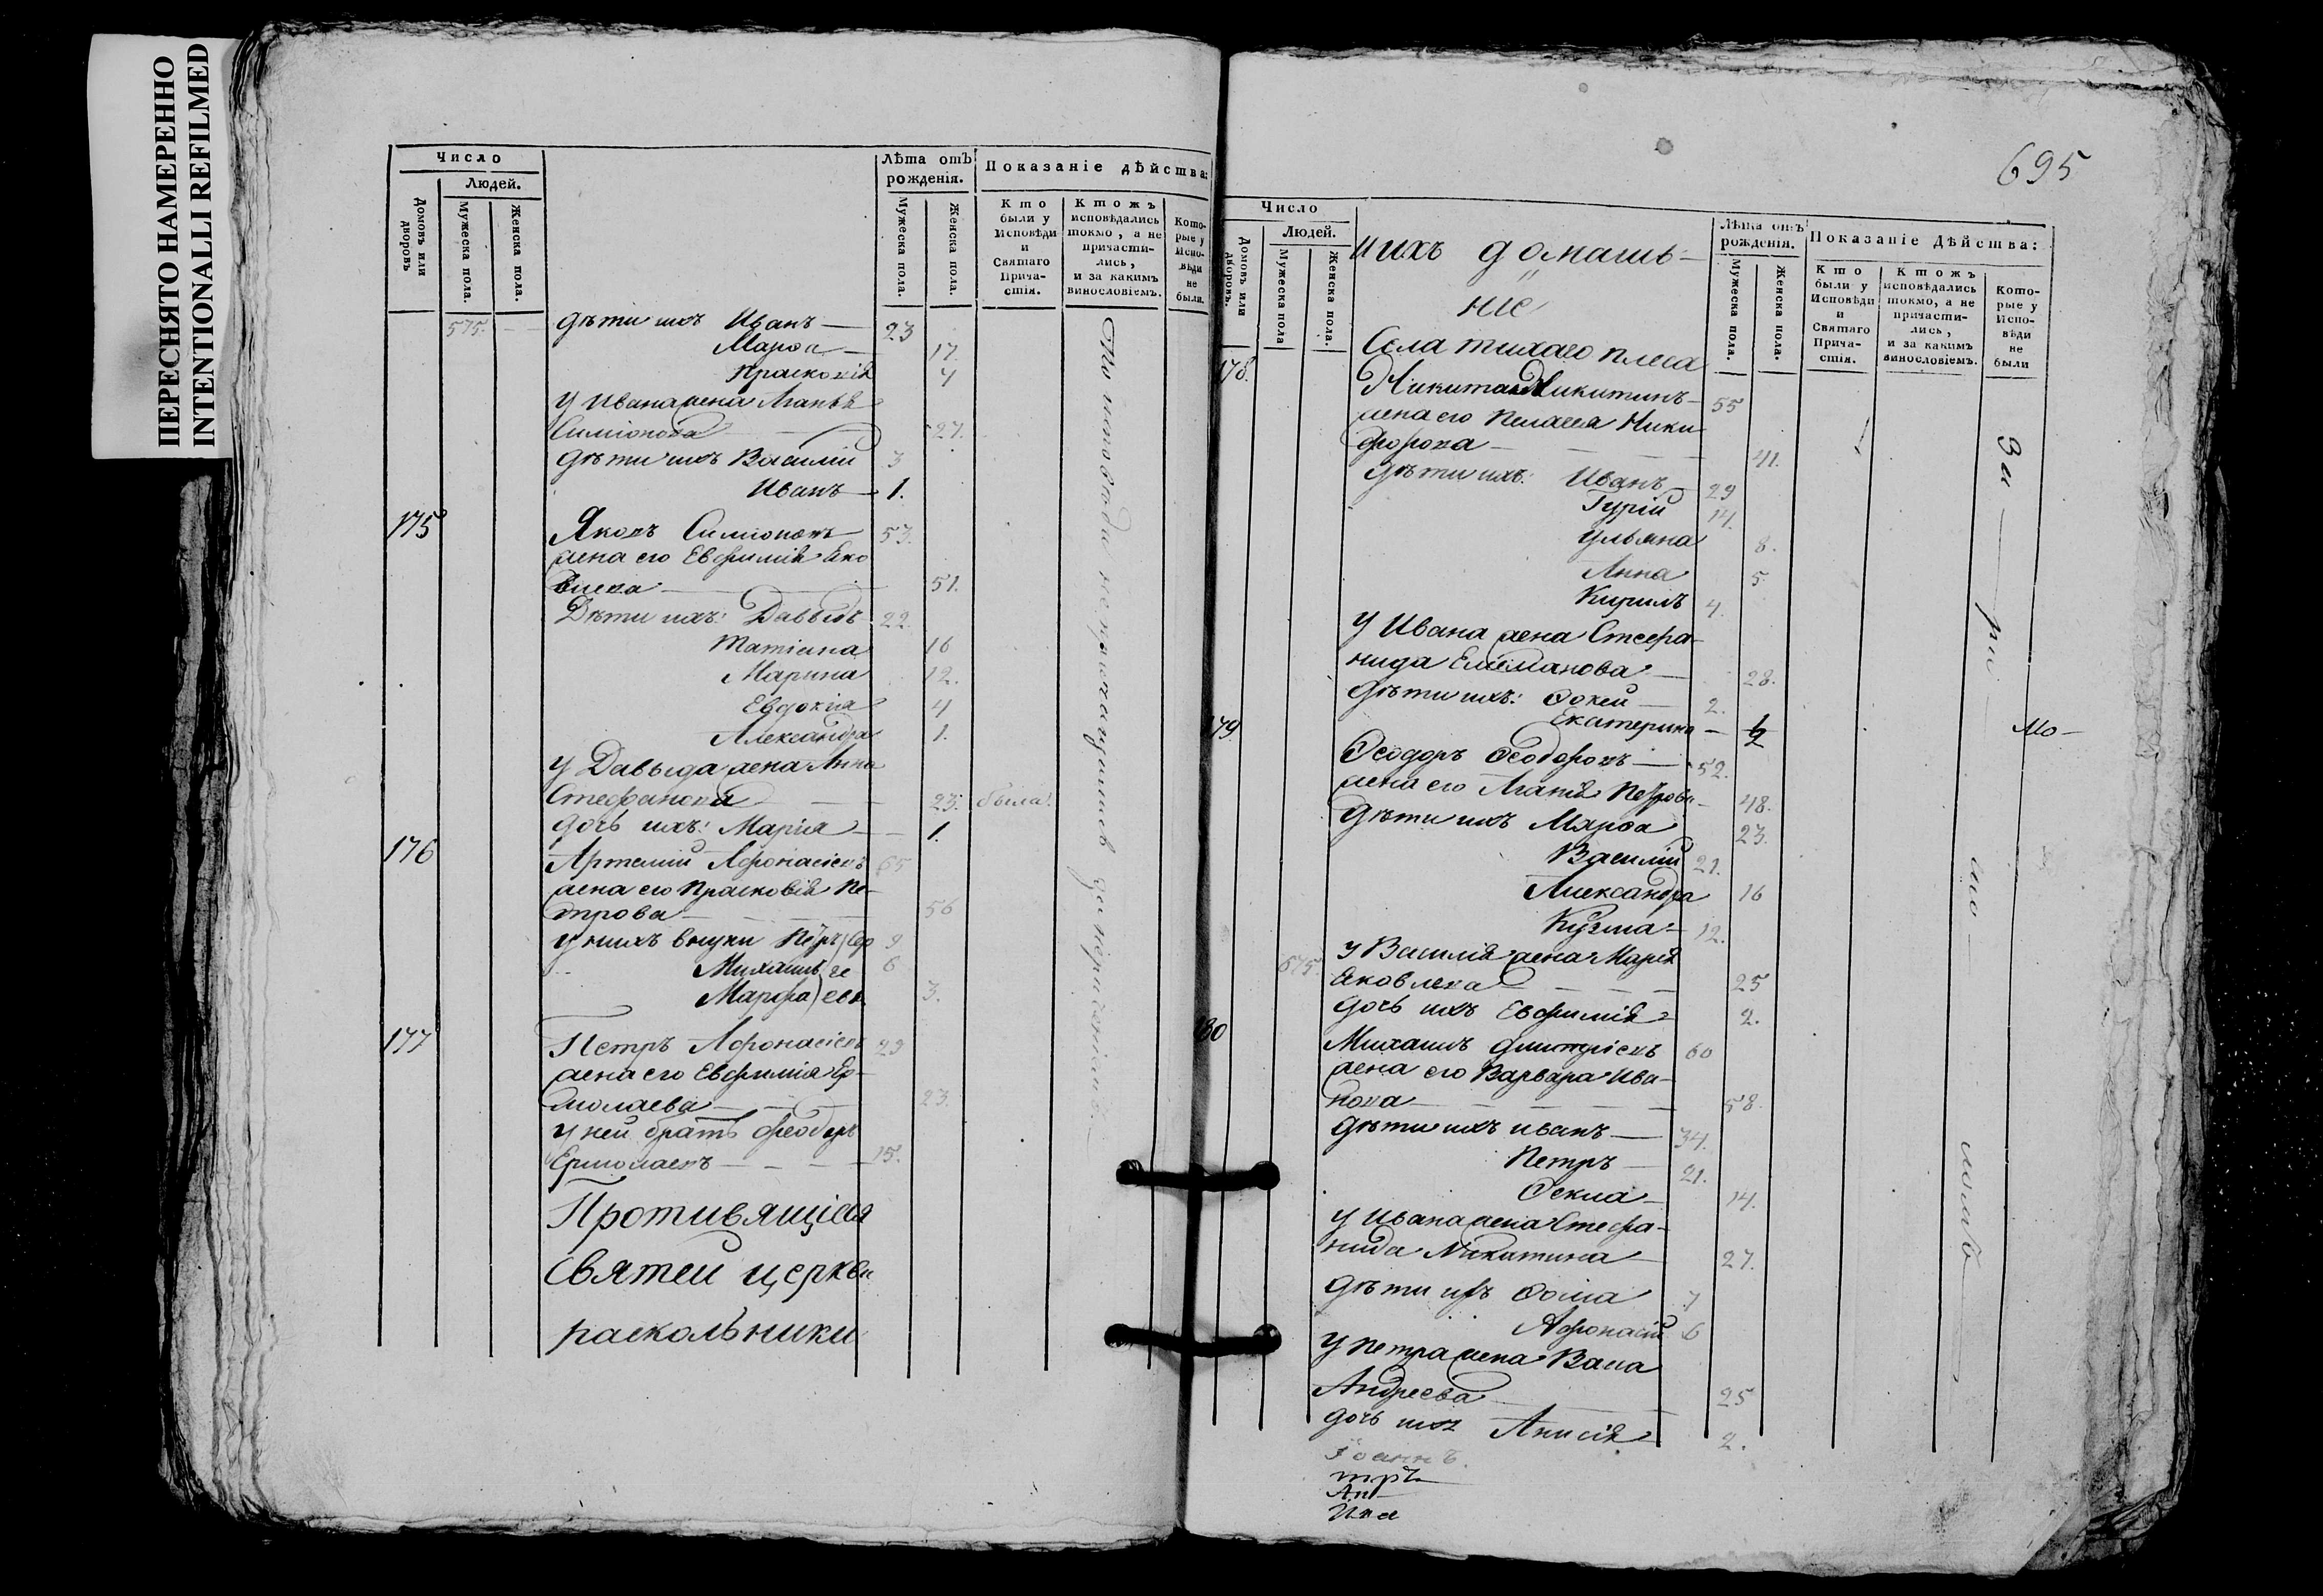 ПЕРЕСНЯТО НАМЕРЕННО
INTENTIONALLI REFILMED
Число
Людей.
Домовъ или дворовъ
Мужеска пола.
Женска пола.
Лѣта отъ рожденія.
Мужеска пола.
Женска пола.
Показаніе дѣйства:
Кто были у Исповѣди и Святаго Прича-стія.
Ктожъ исповѣдались токмо, а не причасти-лись, и за какимъ винословіемъ.
Кото-рые у Испо-вѣди не были.
575. дѣти ихъ Иванъ 23
Марѳа 17.
Праскокія 4
у Ивана жена Агапья
Симіонова 27.
дѣти ихъ Василій 3
Иванъ 1.
175 Яковъ Симіоновъ 53.
жена его Евфимія Яко
влева 51.
Дѣти ихъ: Давыдъ 22.
Татіана 16
Марина 12.
Евдокия 4
Александра 1.
у Давыда жена Анна
Стефанова 23. была.
дочь ихъ: Марія 1.
176 Артемий Афонасіевъ 65
жена его Прасковія Пе-
трова 56
у нихъ внуки Петръ 9
Михаилъ 6
Марфа 3.
177 Петръ Афонасіевъ 29
жена его Евфимія Ер-
молаева 23.
у ней братъ Феодоръ
Ермолаевъ 15.
Противящіися
святей церкви
раскольники
695
Число
Людей.
Домовъ или дворовъ.
Мужеска пола
Женска пола.
Лѣта отъ рожденія.
Мужеска пола.
Женска пола.
Показаніе Дѣйства:
Кто были у Исповѣди и Святаго Прича-стія.
Ктожъ исповѣдались токмо, а не причасти-лись, и за какимъ винословіемъ.
Кото-рые у Испо-вѣди не были
и ихъ домашь-
ніе
Села тихаго плеса
178. Никита Никитинъ 55
жена его Пелагея Ники
форова 41.
дѣти ихъ: Иванъ 29
Гурій 14.
Ульяна 8.
Анна 5.
Кирилъ 4.
у Ивана жена Стефа-
нида 28.
дѣти ихъ: Ѳокей 2.
Екатерина
179 Ѳеодоръ Ѳеодоровъ 52.
жена его Агапія Петрова 48.
дѣти ихъ Марѳа 23.
Василій 21.
Александра 16
Кузма 12.
675. у Василія жена Марія
Яковлева 25
дочь ихъ Евфимія 2.
180 Михаилъ Дмитріевъ 60
жена его Варвара Ива-
нова 58.
дѣти ихъ Иванъ 34.
Петръ 21.
Ѳекла 14.
у Ивана жена Стефа-
нида Никитина 27.
дѣти ихъ Ѳома 7
Афонасій 6
у Петра жена Васа
Андреева 25
дочь ихъ Анисія 2.
Іоаннъ.